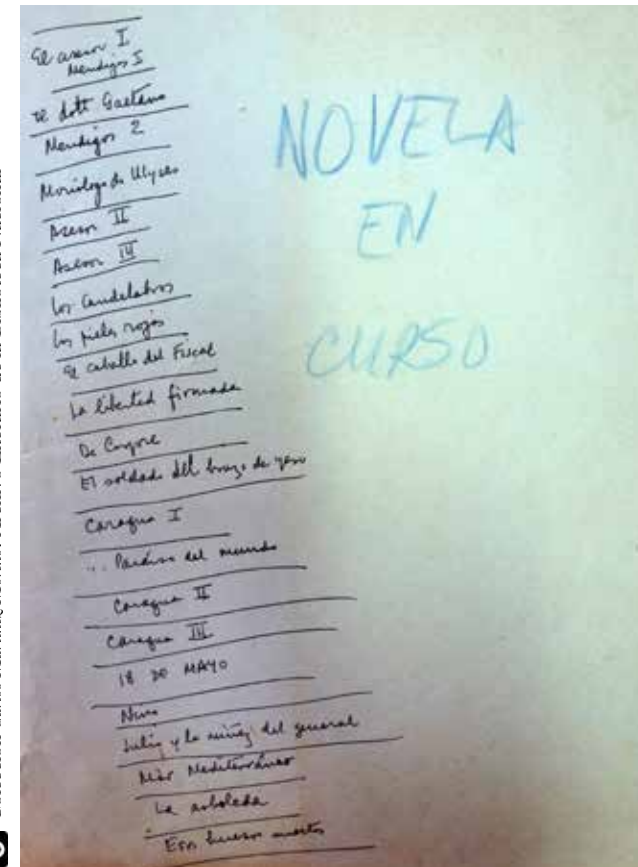 El asesor I
Mendigos I
El dott Gaetano
Mendigos 2
Monólogo de Ulyses
Asesor II
Asesor III
Los candelabros
Los pieles rojas
El caballo del Fiscal
La libertad firmada
De
El soldado del brazo de yeso
Caragua I
... Paraíso del mundo
Caragua II
Caragua III
18 DE MAYO
y la niñez del general
Mar Mediterráneo
La arboleda
Esos huesos muertos
NOVELA
EN
CURSO